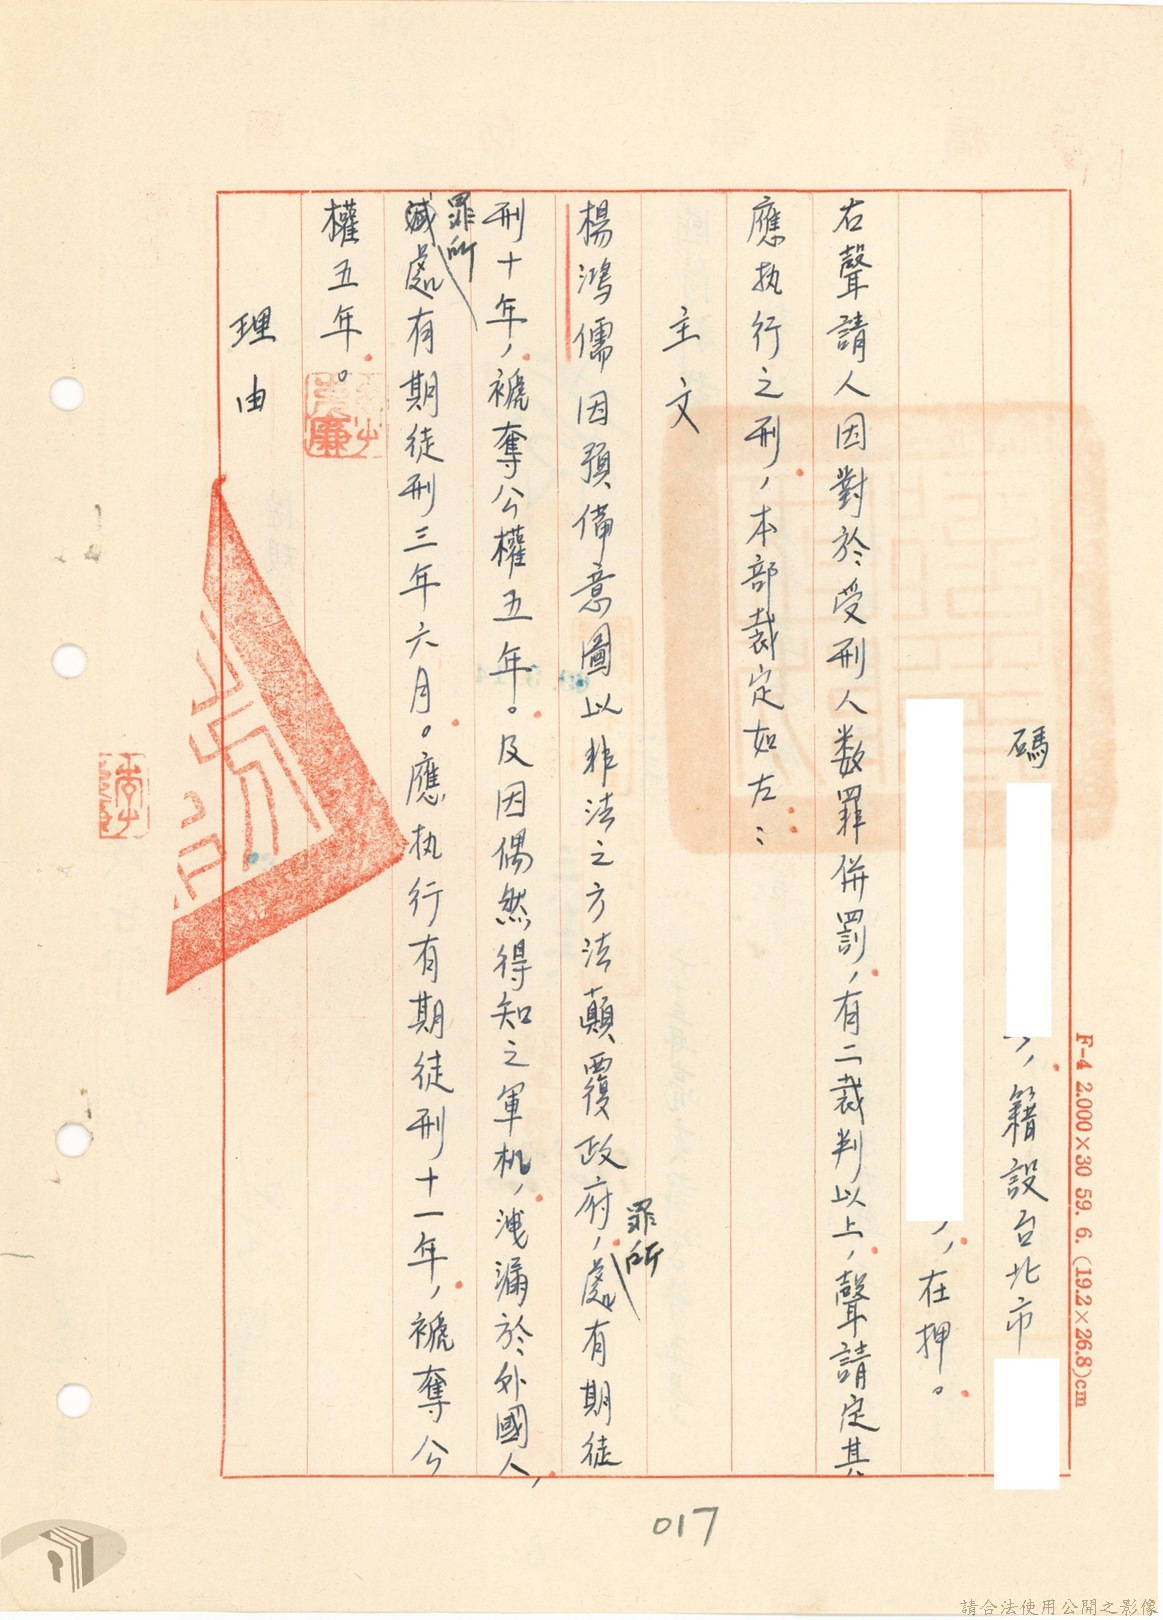 碼
，籍設台北市
，在押。
右聲請人因對於受刑人数罪併罰，有二裁判以上，聲請定其
應执行之刑，本部裁定如左：
主文
楊鴻儒因預備意圖以非法之方法顛覆政府，罪所處有期徒
刑十年，褫奪公權五年。及因偶然得知之軍机，洩漏於外國人，
罪所減處有期徒刑三年六月。應执行有期徒刑十一年，褫奪公
權五年。
理由
F-4 2.000×30 59. 6. (19.2×26.8)cm
017
請合法使用公開之影像